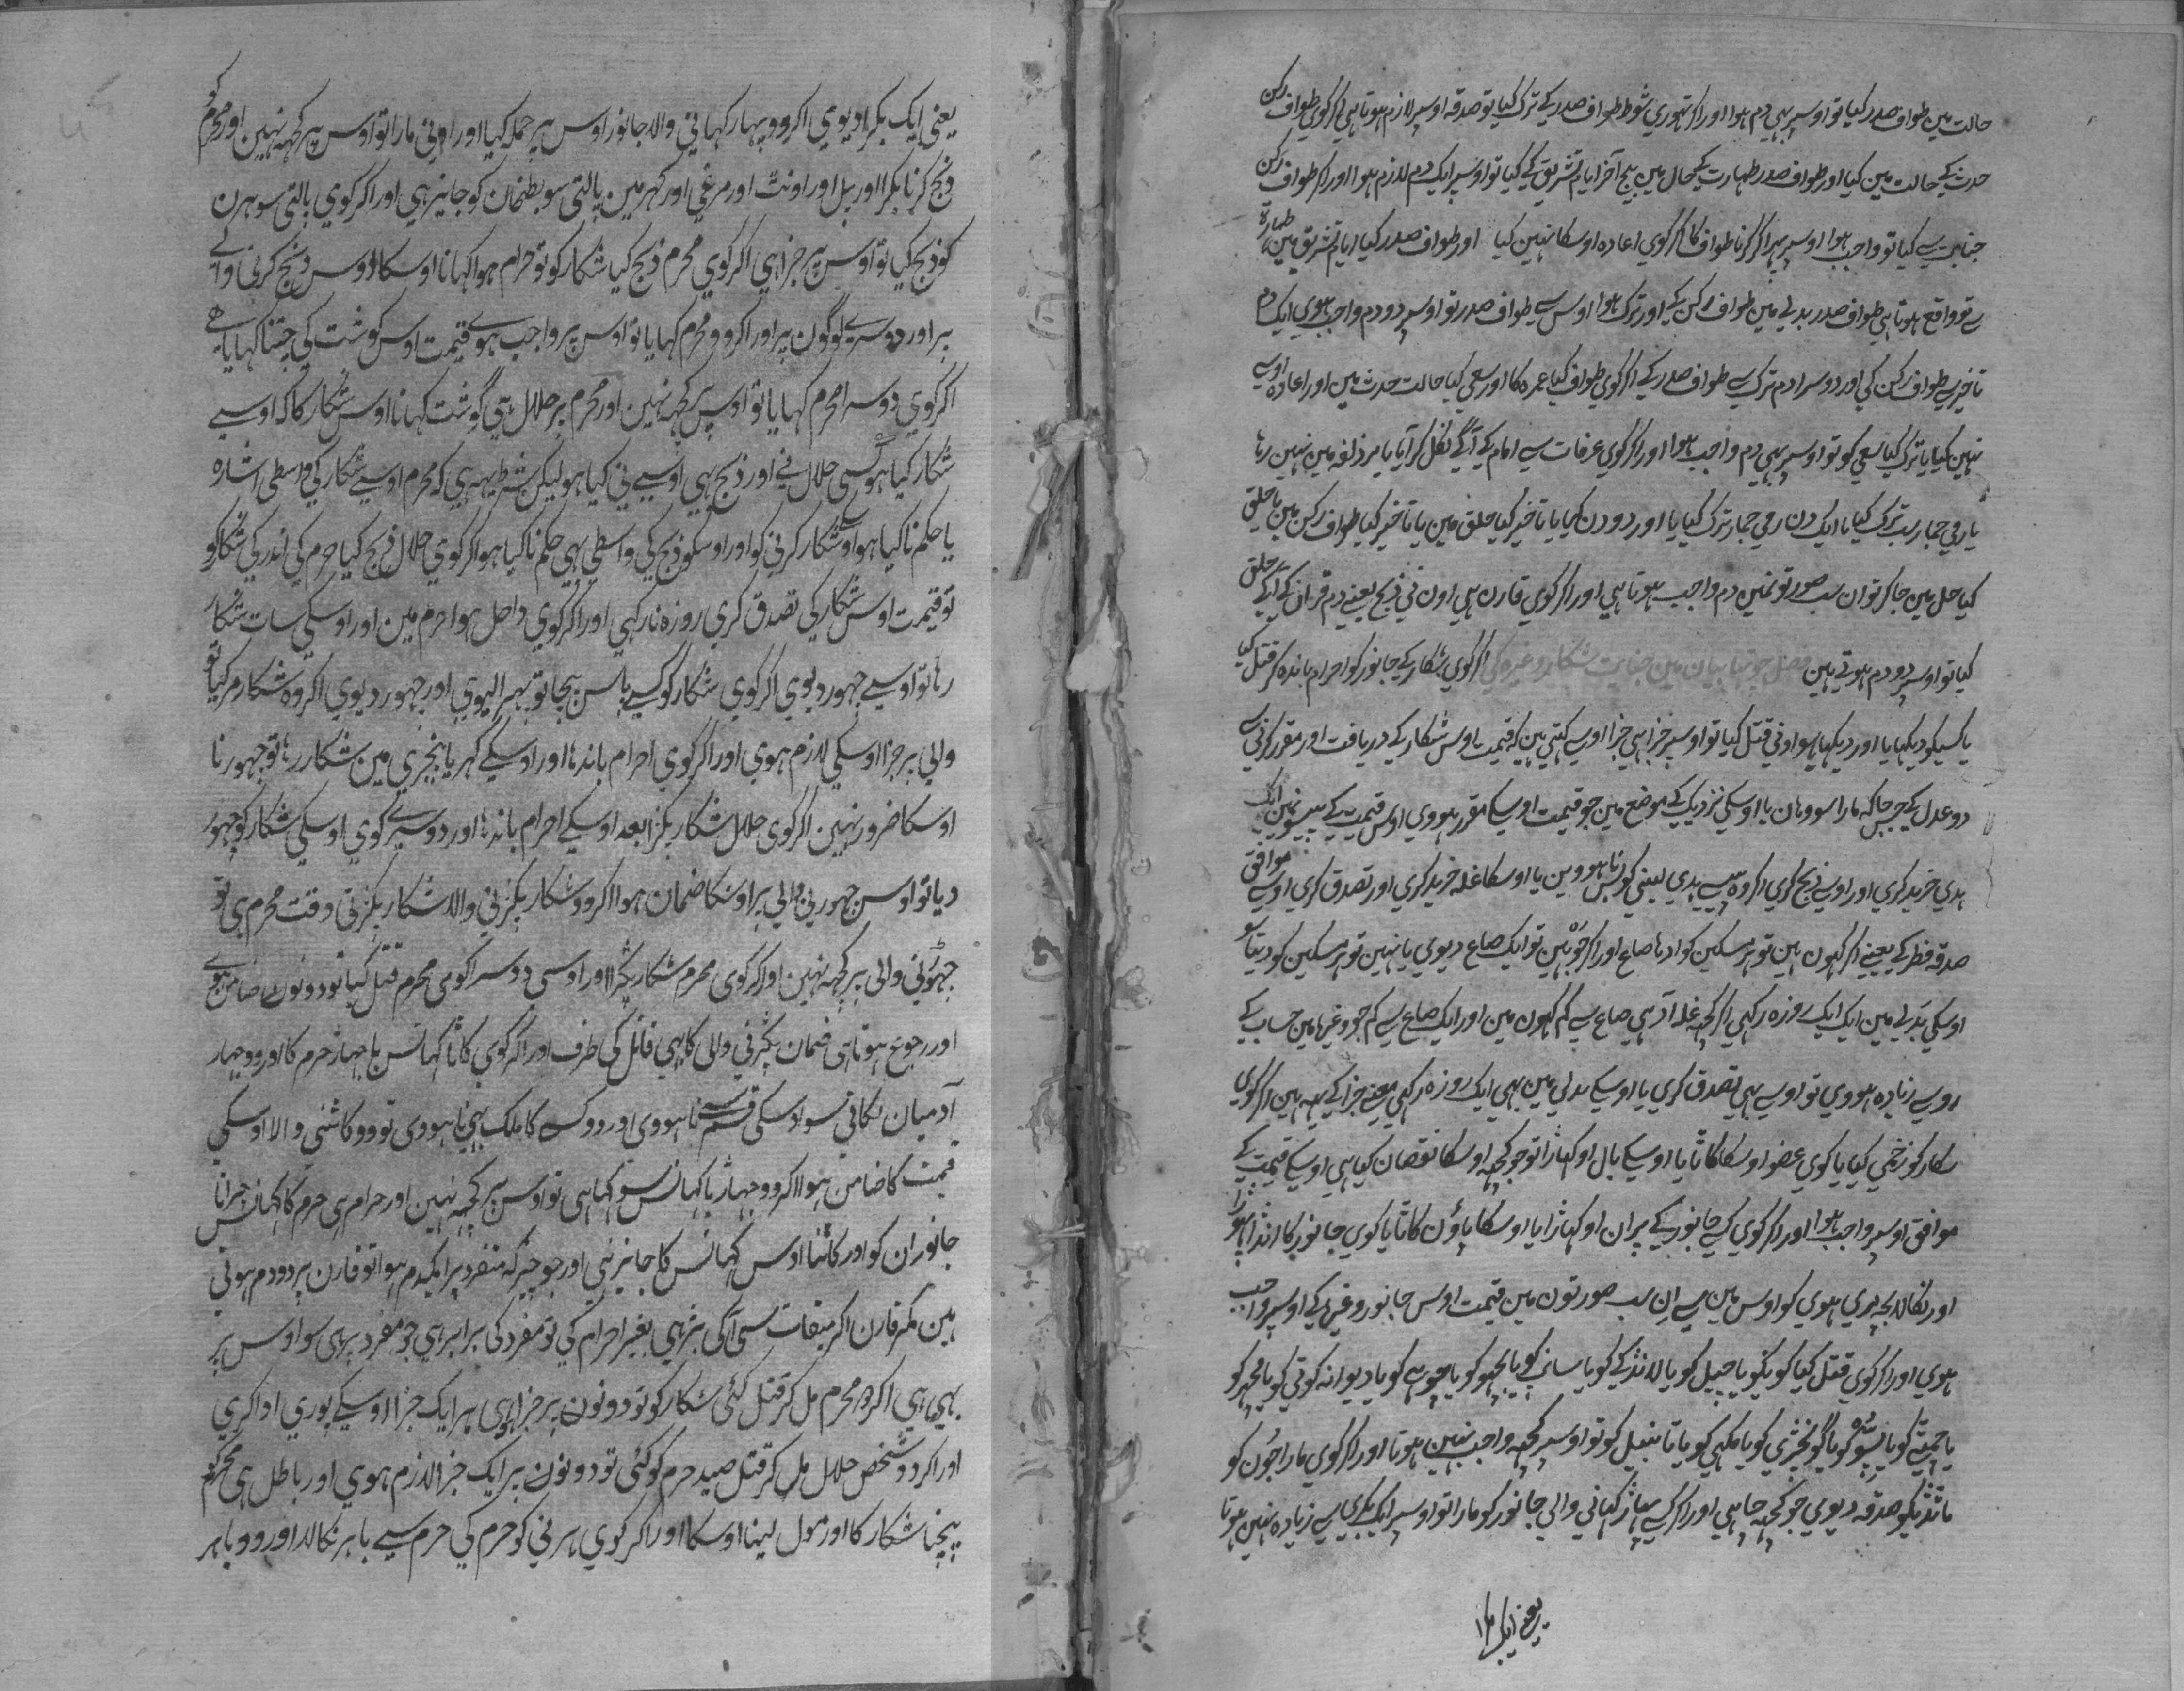 حالت مین طواف صدر کیا تو اوسپر بہی دم ہوا اور اکر تہوری شوط طواف صدر کے ترک کیا تو صدقہ اوسپر لازم ہوتا ہی اکر کوی طواف رکن
حدث کے حالت مین کیا اور طواف صدر طہارت کے حال مین بیچ آخر ایام تشریق کے کیا تو اوسپر ایک دم لازم ہوا اور اکر طواف رکن
جنابت سے کیا تو واجب ہوا اوسپر پہر اکر کرنا طواف کا اکر کوی اعادہ اوسکا نہین کیا اور طواف صدر کیا ایام تشریق مین طہارۃ
سے تو واقع ہوتا ہی طواف صدر بدلے مین طواف رکن کے اور ترک ہوا اوس سے طواف صدر تو اوسپر دو دم واجب ہوی ایک دم
تاخیر سے طواف رکن کی اور دوسرا دم ترک سے طواف صدر کے اکر کوی طواف کیا عمرہ کا اور سعی کیا حالت حدث مین اور اعادہ اوسے
نہین کیا یا ترک کیا سعی کو تو اوسپر بہی دم واجب ہوا اور اکر کوی عرفات سے امام کے آگے نکل کر آیا یا مزدلفہ مین نہین رہا
یا رمی جمار سب ترک کیا یا ایک دن رمی جمار ترک کیا یا اور دو دن کیا یا تاخیر کیا حلق مین یا تاخیر کیا طواف رکن مین یا حلق
کیا حل مین جا کر تو ان سب صورتو نمین دم واجب ہوتا ہی اور اکر کوی قارن ہی اون نی ذبح یعنے دم قران کے آگے حلق
کیا تو اوسپر دو دم ہوتے ہین فصل چوتہا بیان مین جنایت شکار وغیرہ کی اکر کوی شکار کے جانور کو احرام باندہ کر قتل کیا
یا کسیکو دیکہایا اور دیکہایا سو اونی قتل کیا تو اوسپر جزا ہی جزا اوسے کہتے ہین کہ قیمت اوس شکار کے دریافت اور مقرر کرنی سے
دو عدل کے جس جاکہ مارا سو وہان یا اوسکی نزدیک کے موضع مین جو قیمت اوسکا مقرر ہووی اوس قیمت کے پیسونمین ایک
ہدی خرید کری اور اوسے ذبح کری اکر وہ پیسے ہدی لینی کو بس ناہووین یا اوسکا غلہ خرید کری اور تصدق کری اوسے موافق
صدقہ فطر کے یعنے اکر کہون ہین تو ہر مسکین کو ادہا صاع اور اکر جو ہین تو ایک صاع دیوی یا نہین تو ہر مسکین کو دیتا سو
اوسکی بدلے مین ایک ایک روزہ رکہی اکر کچہہ غلہ آدہی صاع سے کم کہون مین اور ایک صاع سے کم جو وغیرہا مین حساب کے
روسے زیادہ ہووی تو اوسے بہی تصدق کری یا اوسکے بدلی مین بہی ایک روزہ رکہی معنے جزا کے یہہ ہین اکر کوی
شکار کو زخمی کیا یا کوی عضو اوسکا کاٹا یا اوسکے بال اوکہاڑا تو جو کچہہ اوسکا نقصان کیا ہی اوسکے قیمت کے
موافق اوسپر واجب ہوا اور اکر کوی کسے جانور کے پران اوکہاڑا یا اوسکا پاؤن کاٹا یا کوی جانور کا انڈا پہوڑا
اور نکالا بچہ مری ہوی کو اوس مین سے ان سب صورتون مین قیمت اوس جانور وغیرہ کے اوسپر واجب
ہوی اور اکر کوی قتل کیا کویکو یا چیل کو یا لانڈگے کو یا سانپ کو یا بچہو کو یا چوہے کو یا دیوانہ کوتی کو یا مچہر کو
یا چمٹے کو یا پشو کو یا گونچڑی کو یا مکہی کو یا تابنیل کو تو اوسپر کچہہ واجب نہین ہوتا اور اکر کوی مارا جون کو
یا تڈیکو صدقہ دیوی جو کچہہ چاہی اور اکر کسے پہاڑ کہانی والی جانور کو مارا تو اوسپر ایک بکری سے زیادہ نہین ہوتا
یعنے ایک بکرا
یعنی ایک بکرا دیوی اکر وو پہار کہانی والا جانور اوس پر حملہ کیا اور اونی مارا تو اوس پر کچہہ نہین اور محرم کو
ذبح کرنا بکرا اور بیل اور اونٹ اور مرغی اور کہر مین پالتی سو بطخان کو جایز ہی اور اکر کوی پالتی سو ہرن
کو ذبح کیا تو اوس پر جزا ہی اکر کوی محرم ذبح کیا شکار کو تو حرام ہوا کہانا اوسکا اوس ذبح کرنی والے
پر اور دوسرے لوگون پر اور اکر وو محرم کہایا تو اوس پر واجب ہے قیمت اوس کوشت کی جتنا کہایا ہے
اکر کوی دوسرا محرم کہایا تو اوس پر کچہہ نہین اور محرم پر حلال ہی گوشت کہانا اوس شکار کا کہ اوسے
شکار کیا ہو کسی حلال نے اور ذبح بہی اوسے نی کیا ہو لیکن شرط یہہ ہی کہ محرم اوسے شکار کی واسطی اشارہ
یا حکم ناکیا ہو اوسے شکار کرنی کو اور اوسکو ذبح کی واسطی بہی حکم ناکیا ہو اکر کوی حلال ذبح کیا حرم کی اندر کی شکار کو
تو قیمت اوس شکار کی تصدق کری روزہ نارکہی اور اکر کوی داخل ہوا حرم مین اور اوسکی سات شکار
رہا تو اوسے چہور دیوی اکر کوی شکار کو کسے پاس بیچا تو پہرا لیوی اور چہور دیوی اکر وہ شکار مر کیا تو
والی پر جزا اوسکی لازم ہوی اور اکر کوی احرام باندہا اور اوسکے گہر یا پنجری مین شکار رہا تو چہورنا
اوسکا ضرور نہین اکر کوی حلال شکار پکڑا بعد اوسکے احرام باندہا اور دوسرے کوی اوسکی شکار کو چہور
دیا تو اوس چہورنی والی پر اوسکا ضمان ہوا اکر وو شکار پکڑنی والا شکار پکڑتی وقت محرم ہی تو
چہوڑنی والی پر کچہہ نہین اور اکر کوی محرم شکار پکڑا اور اوسی دوسرا کوی محرم قتل کیا تو دونون ضامن ہوے
اور رجوع ہوتا ہی ضمان پکڑنی والی کا بہی قاتل کی طرف اور اکر کوی کاٹا کہانس یا جہاڑ حرم کا اور وو جہاڑ
آدمیان لکاتی سو اوسکی قسم سے ناہووی اور وو کسے کا ملک بہی ناہووی تو وو کاٹنی والا اوسکی
قیمت کا ضامن ہوا اکر وو جہاڑ یا کہانس سوکہا ہی تو اوس پر کچہہ نہین اور حرام ہی حرم کا کہانس چرانا
جانوران کو اور کاٹنا اوس کہانس کا جایز نہی اور جو چیز کہ منفرد پر ایکدم ہوا تو قارن پر دو دم ہوتی
ہین مکر قارن اکر میقات سی آگی بڑہی بغیر احرام کی تو مفرد کی برابر ہی جو مفرد پر ہی سو اوس پر
بہی ہی اکر دو محرم مل کر قتل کئی شکار کو تو دونون پر جزا ہوی ہر ایک جزا اوسکے پوری ادا کری
اور اکر دو شخص حلال مل کر قتل صید حرم کو کئی تو دونون پر ایک جزا لازم ہوی اور باطل ہی محرم کو
بیچنا شکار کا اور مول لینا اوسکا اور اکر کوی ہرنی کو حرم کی حرم سے باہر نکالا اور وو باہر